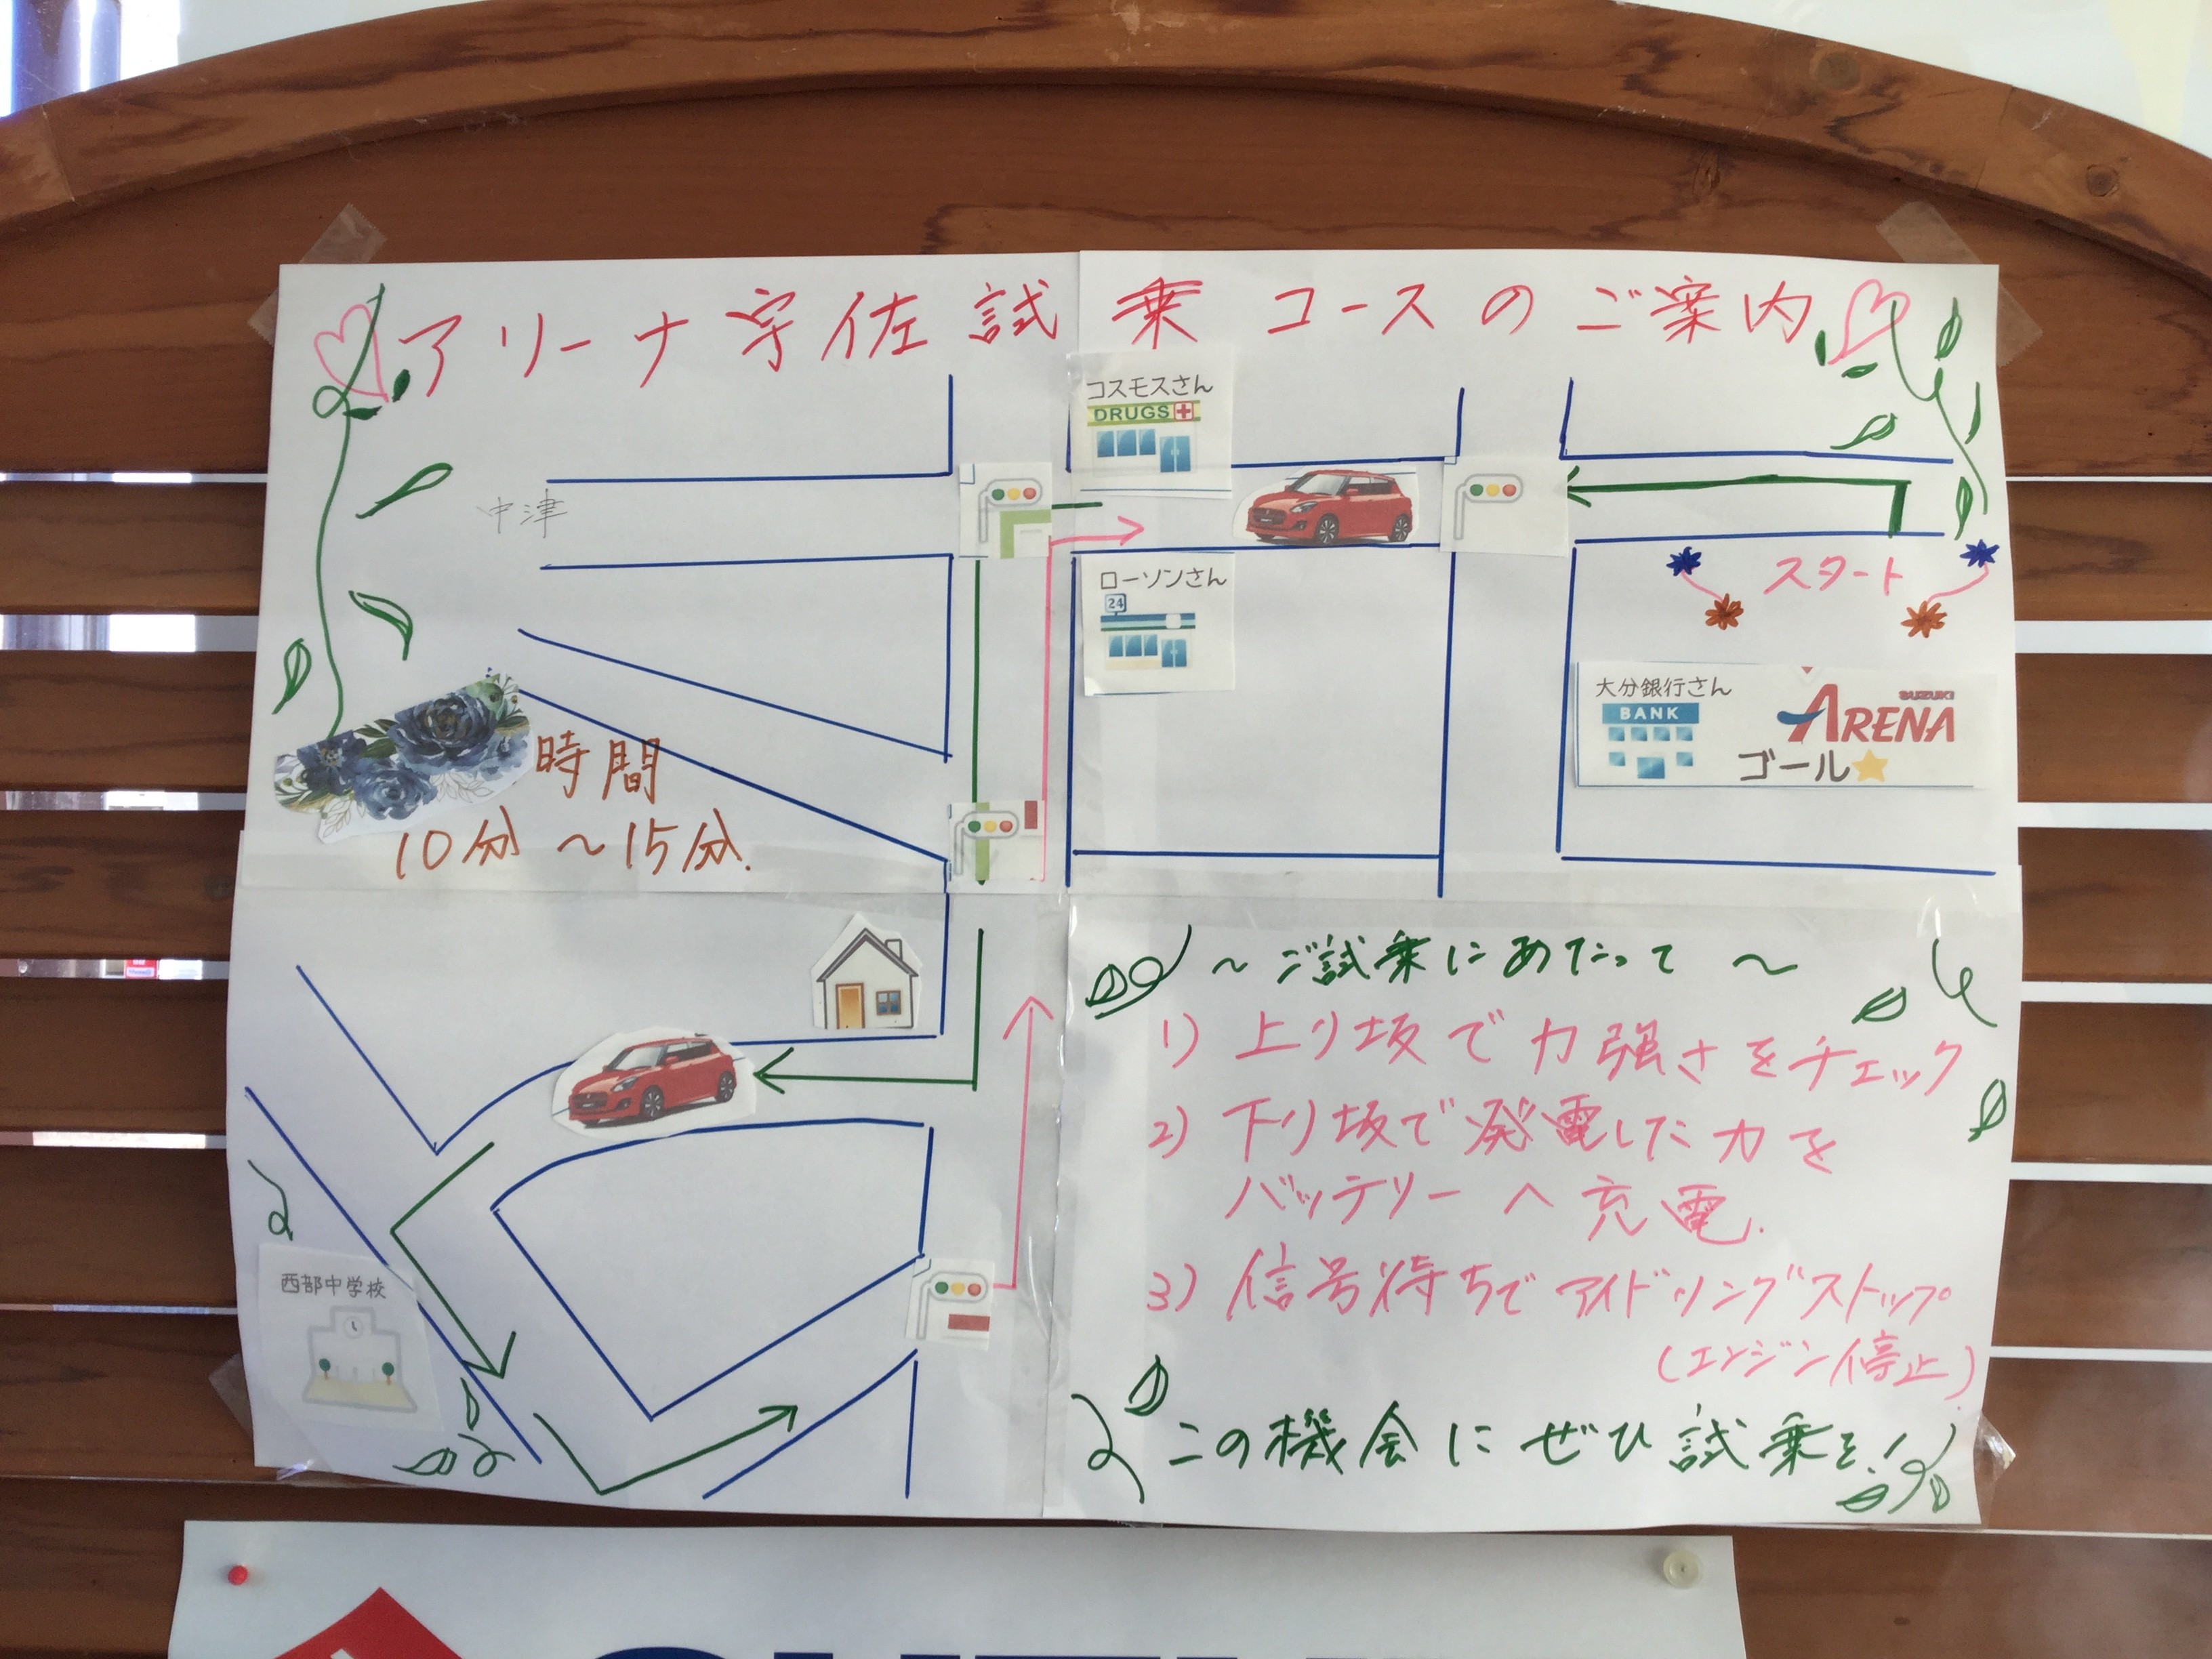 アリーナ宇佐試乗コースのご案内
コスモスさん
DRUGS
中津
ローソンさん
24
スタート
大分銀行さん
BANK
SUZUKI
ARENA
ゴール
時間
10分～15分.
～ご試乗にあたって～
1) 上り坂で力強さをチェック
2) 下り坂で発電した力を
バッテリーへ充電.
3) 信号待ちでアイドリングストップ
(エンジン停止)
西部中学校
この機会にぜひ試乗を!